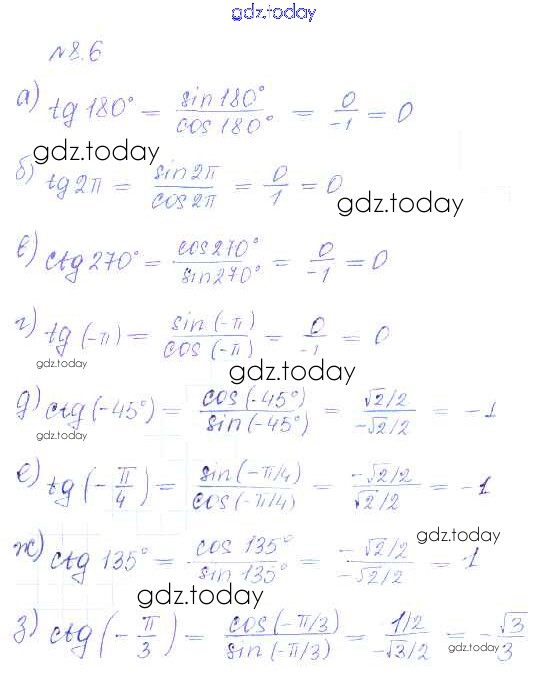 gdz.today
№8.6
а) tg 180° = sin 180° / cos 180° = 0 / -1 = 0
gdz.today
б) tg 2π = sin 2π / cos 2π = 0 / 1 = 0
gdz.today
в) ctg 270° = cos 270° / sin 270° = 0 / -1 = 0
г) tg (-π) = sin (-π) / cos (-π) = 0 / -1 = 0
gdz.today
gdz.today
д) ctg (-45°) = cos (-45°) / sin (-45°) = √2/2 / -√2/2 = -1
gdz.today
е) tg (-π/4) = sin (-π/4) / cos (-π/4) = -√2/2 / √2/2 = -1
gdz.today
ж) ctg 135° = cos 135° / sin 135° = -√2/2 / -√2/2 = 1
gdz.today
gdz.today
з) ctg (-π/3) = cos (-π/3) / sin (-π/3) = 1/2 / -√3/2 = -√3/3
gdz.today